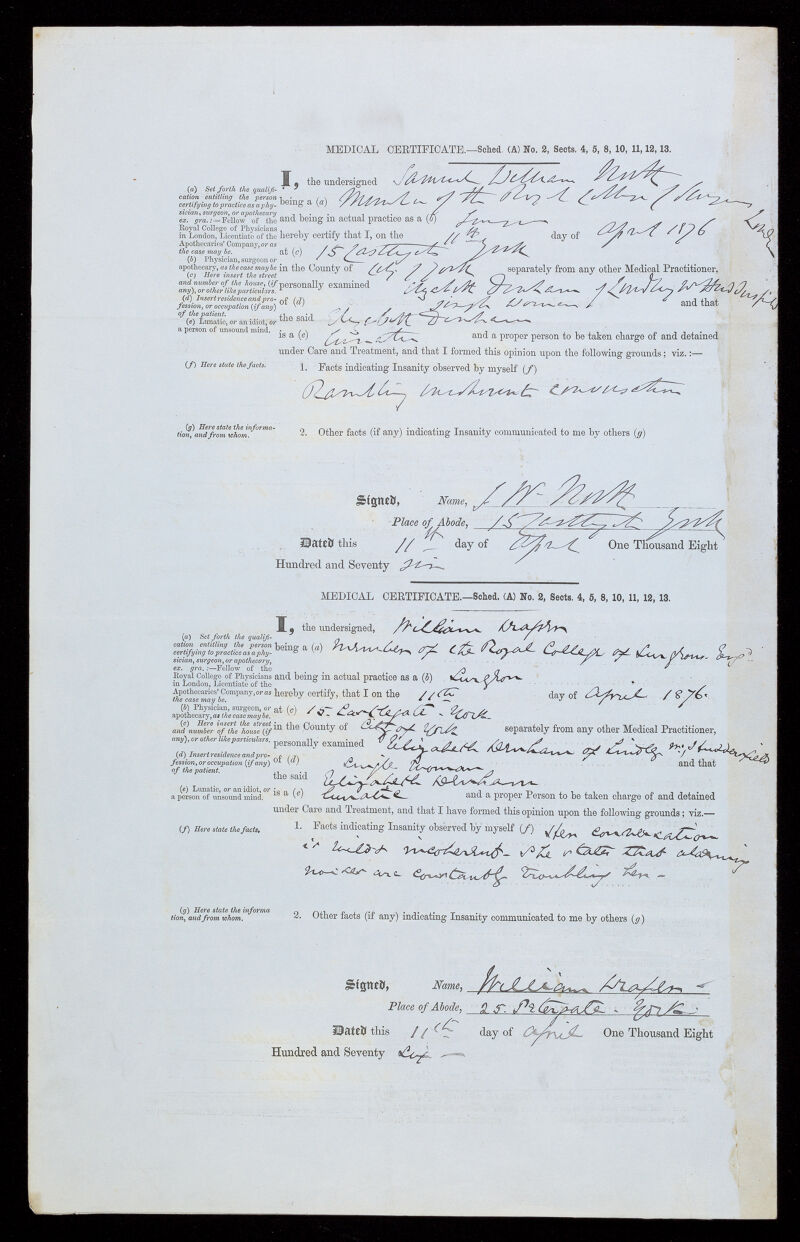 MEDICAL CERTIFICATE.—Sched. (A) No. 2, Sects. 4, 5, 8, 10, 11, 12, 13.
(a) Set forth the qualifi-
cation entitling the person
certifying to practice as a phy-
sician, surgeon, or apothecary
ex. gra.:—Fellow of the
Royal College of Physicians
in London, Licentiate of the
Apothecaries' Company, or as
the case may be.
(b) Physician, surgeon or
apothecary, as the case may be
(c) Here insert the street
and number of the house, (if
any), or other like particulars.
(d) Insert residence and pro-
fession, or occupation (if any)
of the patient.
(e) Lunatic, or an idiot, or
a person of unsound mind.
I, the undersigned Samuel William North
being a (a) Member of the Royal College of Surgeons London
and being in actual practice as a (b) Surgeon
hereby certify that I, on the 11th day of April 1876
at (c) 15 Castlegate York
in the County of City of York separately from any other Medical Practitioner,
personally examined Elizabeth Denham of Lindley Nr Huddersfield
of (d) Single Woman and that
the said Elizabeth Denham
is a (e) Lunatic and a proper person to be taken charge of and detained
under Care and Treatment, and that I formed this opinion upon the following grounds; viz.:—
(f) Here state the facts.
1. Facts indicating Insanity observed by myself (f)
Rambling incoherent conversation
(g) Here state the informa-
tion, and from whom.
2. Other facts (if any) indicating Insanity communicated to me by others (g)
Signed, Name, S W North
Place of Abode, 15 Castlegate York
Dated this 11th day of April One Thousand Eight
Hundred and Seventy six
MEDICAL CERTIFICATE.—Sched. (A) No. 2, Sects. 4, 5, 8, 10, 11, 12, 13.
(a) Set forth the qualifi-
cation entitling the person
certifying to practice as a phy-
sician, surgeon, or apothecary,
ex. gra.:—Fellow of the
Royal College of Physicians
in London, Licentiate of the
Apothecaries' Company, or as
the case may be.
(b) Physician, surgeon, or
apothecary, as the case may be.
(c) Here insert the street
and number of the house (if
any), or other like particulars.
(d) Insert residence and pro-
fession, or occupation (if any)
of the patient.
(e) Lunatic, or an idiot, or
a person of unsound mind.
I, the undersigned, William Draper
being a (a) Member of the Royal College of Surgeons. Engd
and being in actual practice as a (b) Surgeon
hereby certify, that I on the 11th day of April 1876.
at (c) 15. Castlegate - York
in the County of City of York separately from any other Medical Practitioner,
personally examined Elizabeth Denham of Lindley nr Huddersfield
of (d) Single Woman and that
the said Elizabeth Denham
is a (e) Lunatic and a proper Person to be taken charge of and detained
under Care and Treatment, and that I have formed this opinion upon the following grounds; viz.—
(f) Here state the facts,
1. Facts indicating Insanity observed by myself (f) Her conversation
is wild & incoherent - She states that alarming
noises are constantly troubling her -
(g) Here state the informa
tion, and from whom.
2. Other facts (if any) indicating Insanity communicated to me by others (g)
Signed, Name, William Draper -
Place of Abode, 25. Petergate - York.
Dated this 11th day of April One Thousand Eight
Hundred and Seventy Six -